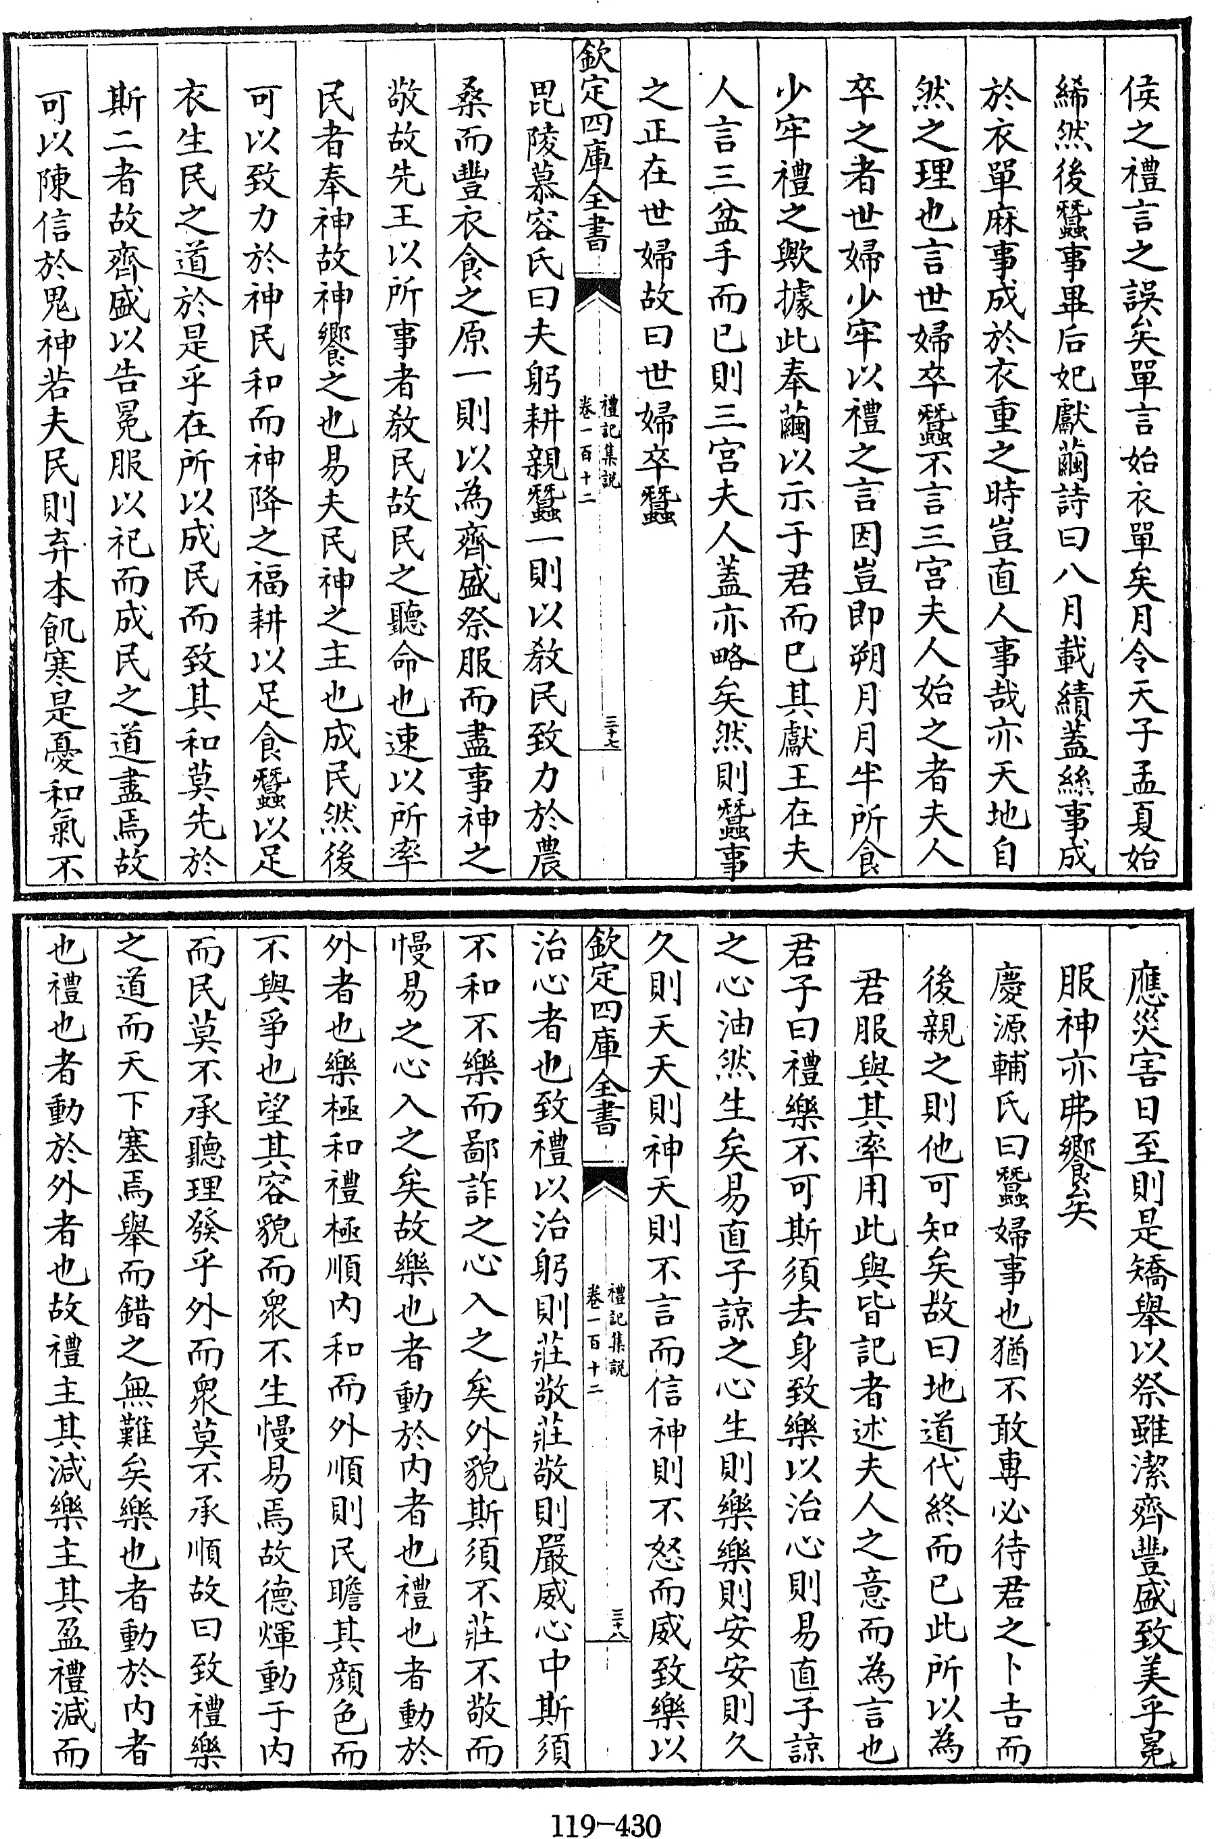 侯之禮言之誤矣單言始衣單矣月令天子孟夏始
絺然後蠶事畢后妃獻繭詩曰八月載績蓋絲事成
於衣單麻事成於衣重之時豈直人事哉亦天地自
然之理也言世婦卒蠶不言三宮夫人始之者夫人
卒之者世婦少牢以禮之言因豈即朔月月半所食
少牢禮之歟據此奉繭以示于君而已其獻王在夫
人言三盆手而已則三宮夫人蓋亦略矣然則蠶事
之正在世婦故曰世婦卒蠶
欽定四庫全書
禮記集說
卷一百十二
三十七
毘陵慕容氏曰夫躬耕親蠶一則以教民致力於農
桑而豐衣食之原一則以為齊盛祭服而盡事神之
敬故先王以所事者教民故民之聽命也速以所率
民者奉神故神饗之也易夫民神之主也成民然後
可以致力於神民和而神降之福耕以足食蠶以足
衣生民之道於是乎在所以成民而致其和莫先於
斯二者故齊盛以告冕服以祀而成民之道盡焉故
可以陳信於鬼神若夫民則弃本飢寒是憂和氣不
應災害日至則是矯舉以祭雖潔齊豐盛致美乎冕
服神亦弗饗矣
慶源輔氏曰蠶婦事也猶不敢專必待君之卜吉而
後親之則他可知矣故曰地道代終而已此所以為
君服與其率用此與皆記者述夫人之意而為言也
君子曰禮樂不可斯須去身致樂以治心則易直子諒
之心油然生矣易直子諒之心生則樂樂則安安則久
久則天天則神天則不言而信神則不怒而威致樂以
欽定四庫全書
禮記集說
卷一百十二
三十八
治心者也致禮以治躬則莊敬莊敬則嚴威心中斯須
不和不樂而鄙詐之心入之矣外貌斯須不莊不敬而
慢易之心入之矣故樂也者動於內者也禮也者動於
外者也樂極和禮極順內和而外順則民瞻其顏色而
不與爭也望其容貌而衆不生慢易焉故德煇動于內
而民莫不承聽理發乎外而衆莫不承順故曰致禮樂
之道而天下塞焉舉而錯之無難矣樂也者動於內者
也禮也者動於外者也故禮主其減樂主其盈禮減而
119-430